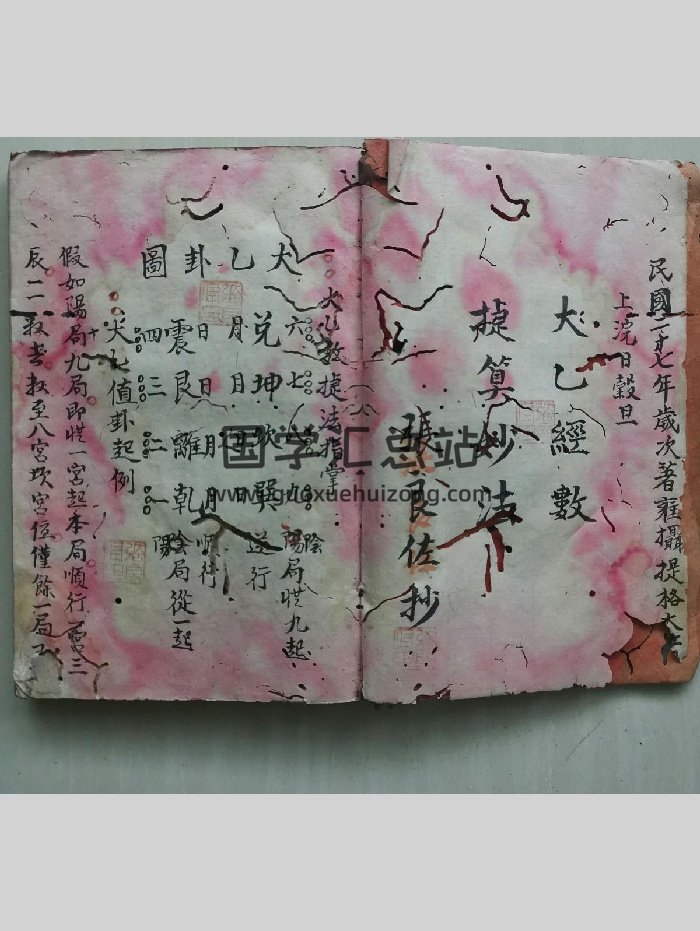 民國二十七年歲次著雍攝提格大
上浣日穀旦
太乙經數
捷算妙法
張良佐抄
太乙数捷法指掌
太乙卦圖
六 七 八 九
兌 坤 坎 巽 逆行
陽局從九起
陰
月 日 日 月
日 日 月 月 順行
震 艮 離 乾 陰局從一起
陽
四 三 二 一
太乙值卦起例
假如陽局九局即從一宮起本局順行一宮三
辰二十数去数至八宮坎宮位僅餘一局
国学汇总站
www.guoxuehuizong.com